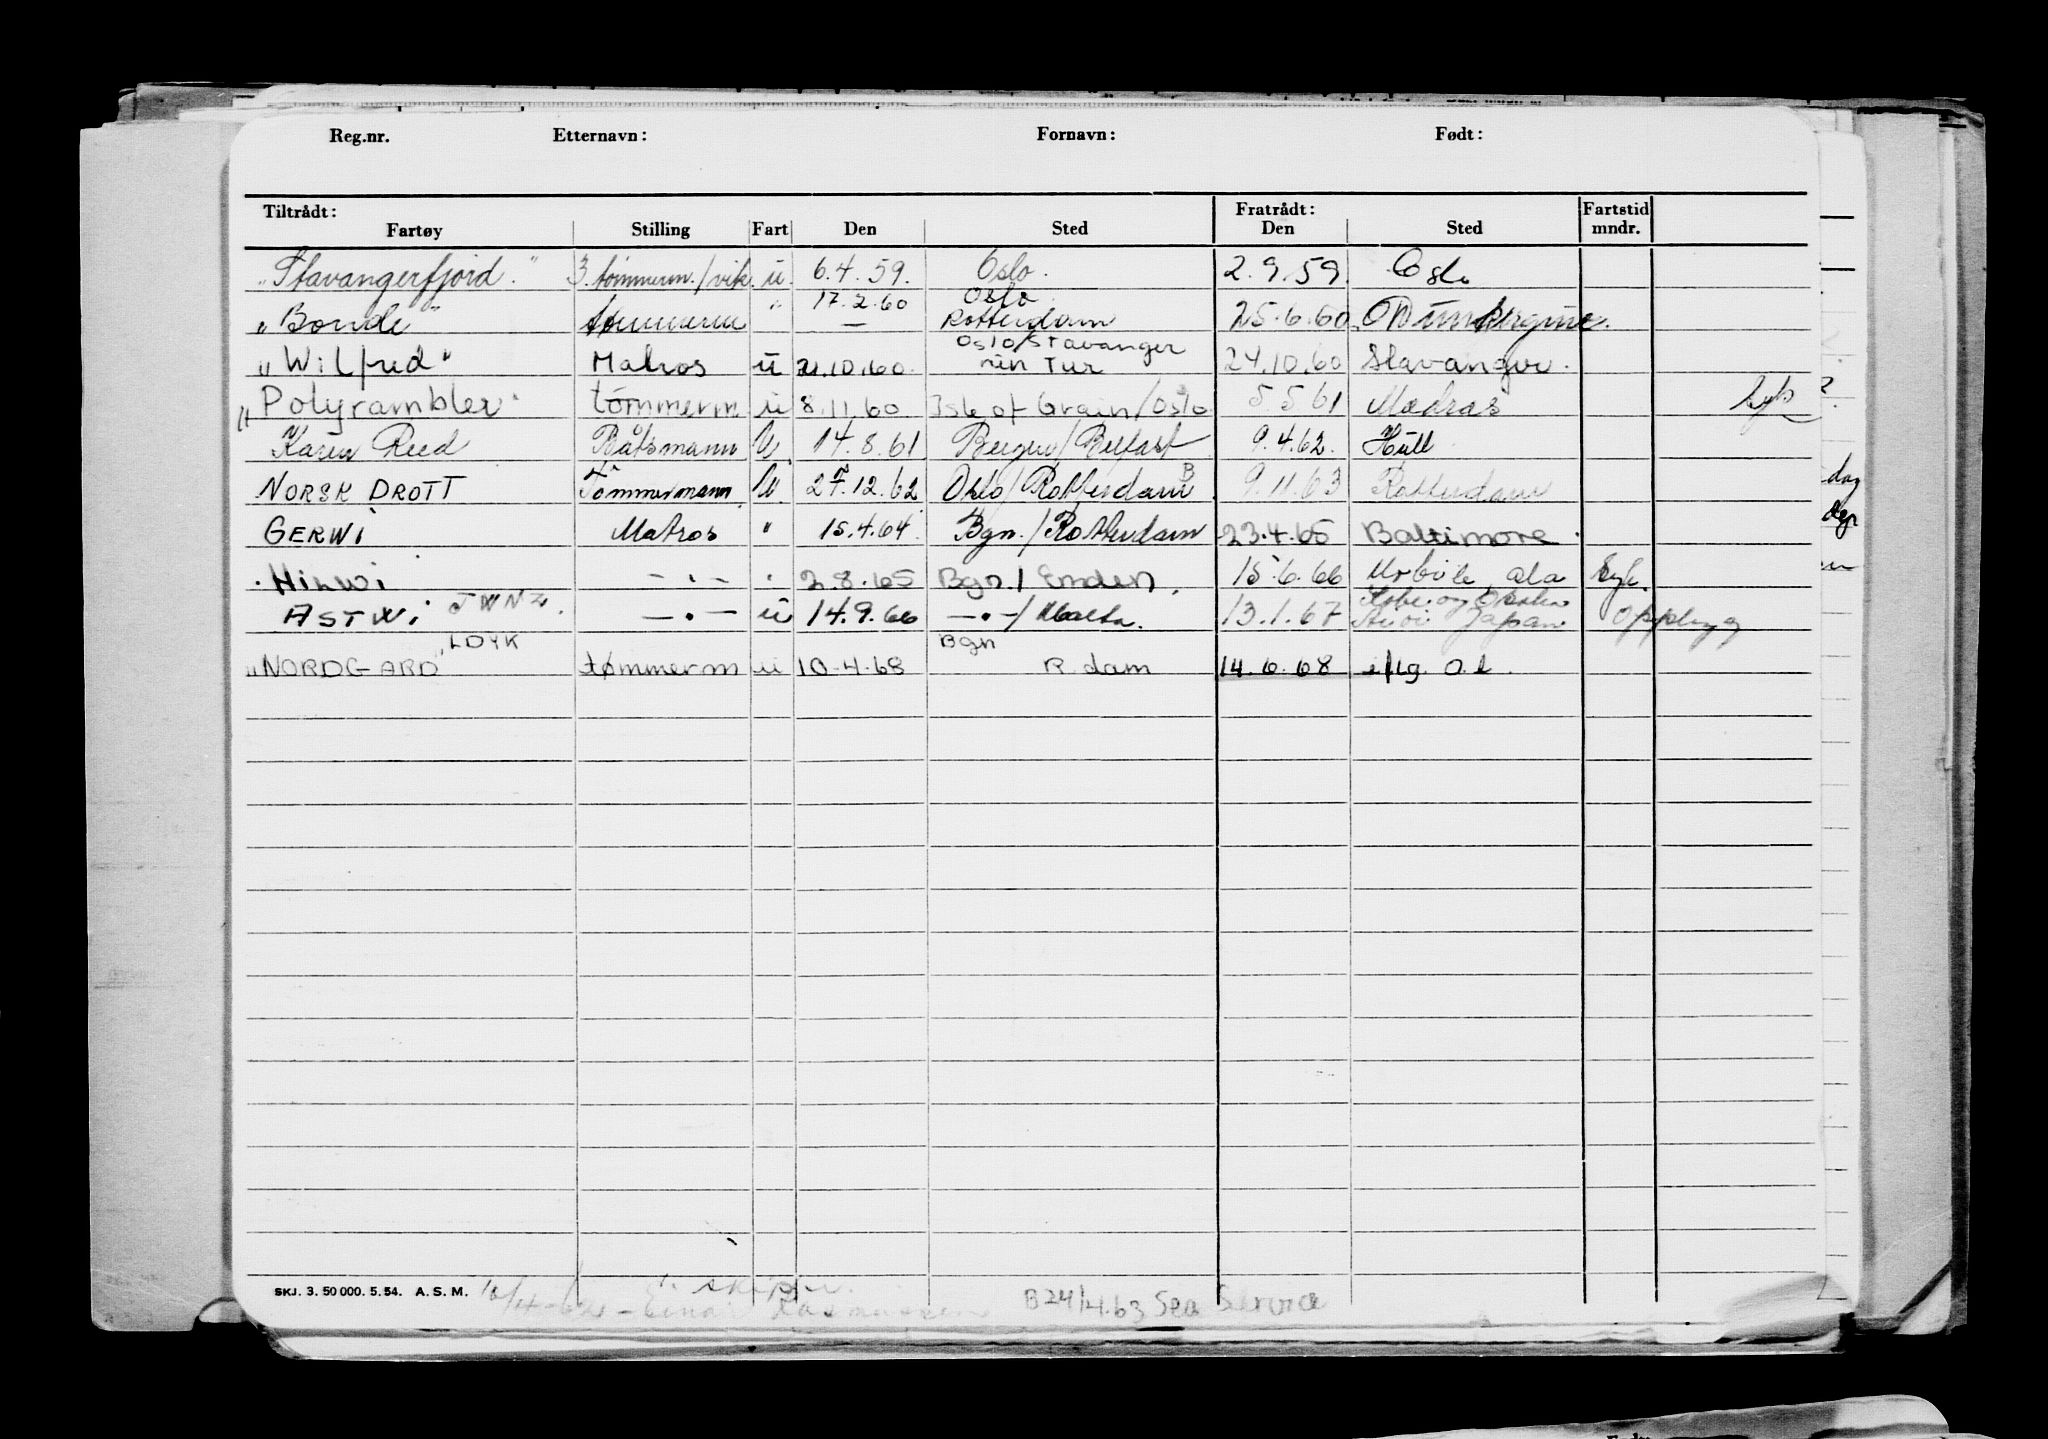 Reg.nr. Etternavn: Fornavn: Født:
Tiltrådt: Fratrådt: Fartstid
Fartøy Stilling Fart Den Sted Den Sted mndr.
"Stavangerfjord." 3. tømmerm./vik. ü. 6.4.59. Oslo. 2.9.59. Oslo
17.2.60 Oslo
"Bonde" tømmerm " — Rotterdam 25.6.60
Oslo/Stavanger
"Wilfred" Matros ü 21.10.60. rein Tur 24.10.60 Stavanger.
"Polyrambler" tømmerm ü 8.11.60 Isle of Grain/Oslo 5.5.61 Madras Syk
Karen Reed Båtsmann U 14.8.61 Bergen/Belfast 9.4.62. Hull
NORSK DROTT Tømmermann U 27.12.62 Oslo/Rotterdam B 9.11.63 Rotterdam
GERWI Matros " 15.4.64. Bgn./Rotterdam 23.4.65 Baltimore.
HILWI — " — " 2.8.65 Bgn/Emden. 15.6.66 Mobile, Ala Syk.
ASTWI JWNZ. — " — ü 14.9.66 — " —/Malta. 13.1.67 Japan Opplegg
"LDYK Bgn
"NORDGARD" tømmerm ü 10.4.68 R.dam 14.6.68 iflg. O.l.
SKJ. 3. 50 000. 5. 54. A. S. M.
B24/4.63 Sea Service